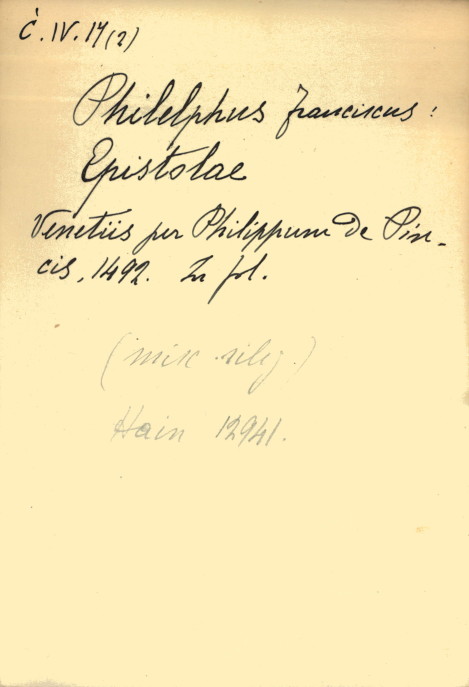 Č. IV. 14 (2)
Philelphus Franciscus:
Epistolae
Venetiis per Philippum de Pin-
cis, 1492. In fol.
Hain 12941.